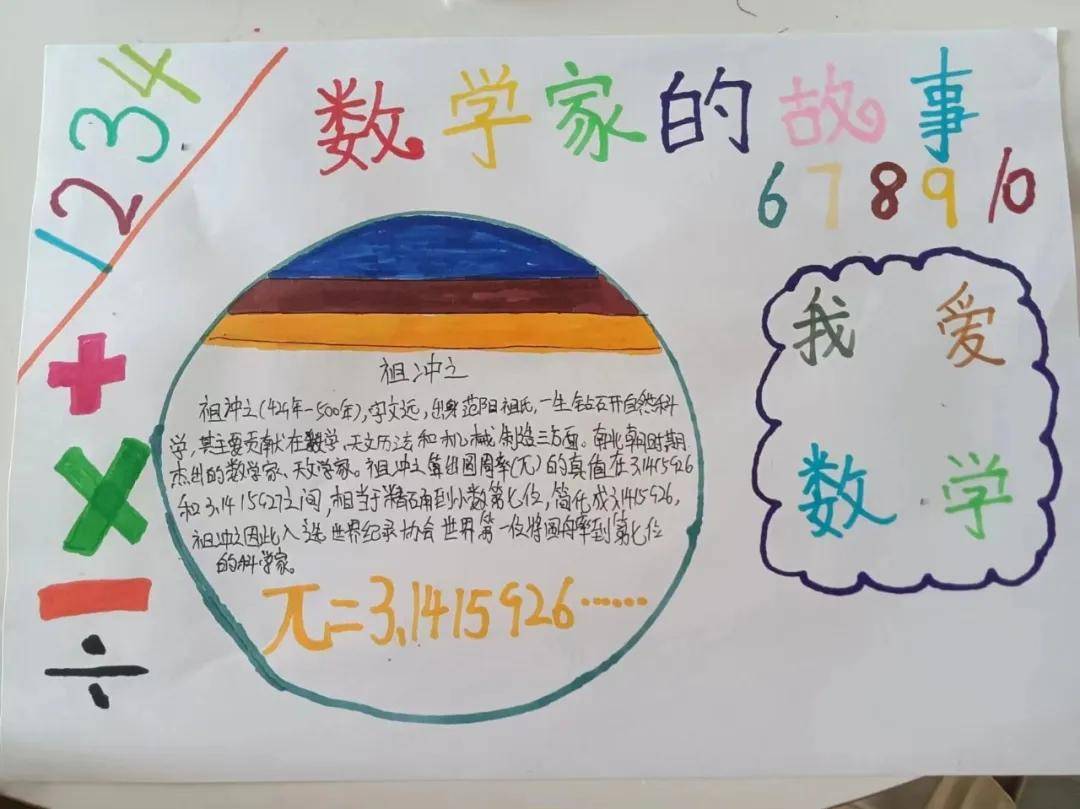 1234
数学家的故事
6 7 8 9 10
+
×
−
÷
祖冲之
祖冲之(429年-500年),字文远,出身范阳祖氏,一生钻研自然科
学,其主要贡献在数学、天文历法和机械制造三方面。南北朝时期
杰出的数学家、天文学家。祖冲之算出圆周率(π)的真值在3.1415926
和3.1415927之间,相当于精确到小数第七位,简化成3.1415926,
祖冲之因此入选世界纪录协会世界第一位将圆周率到第七位
的科学家。
π=3.1415926……
我爱
数学